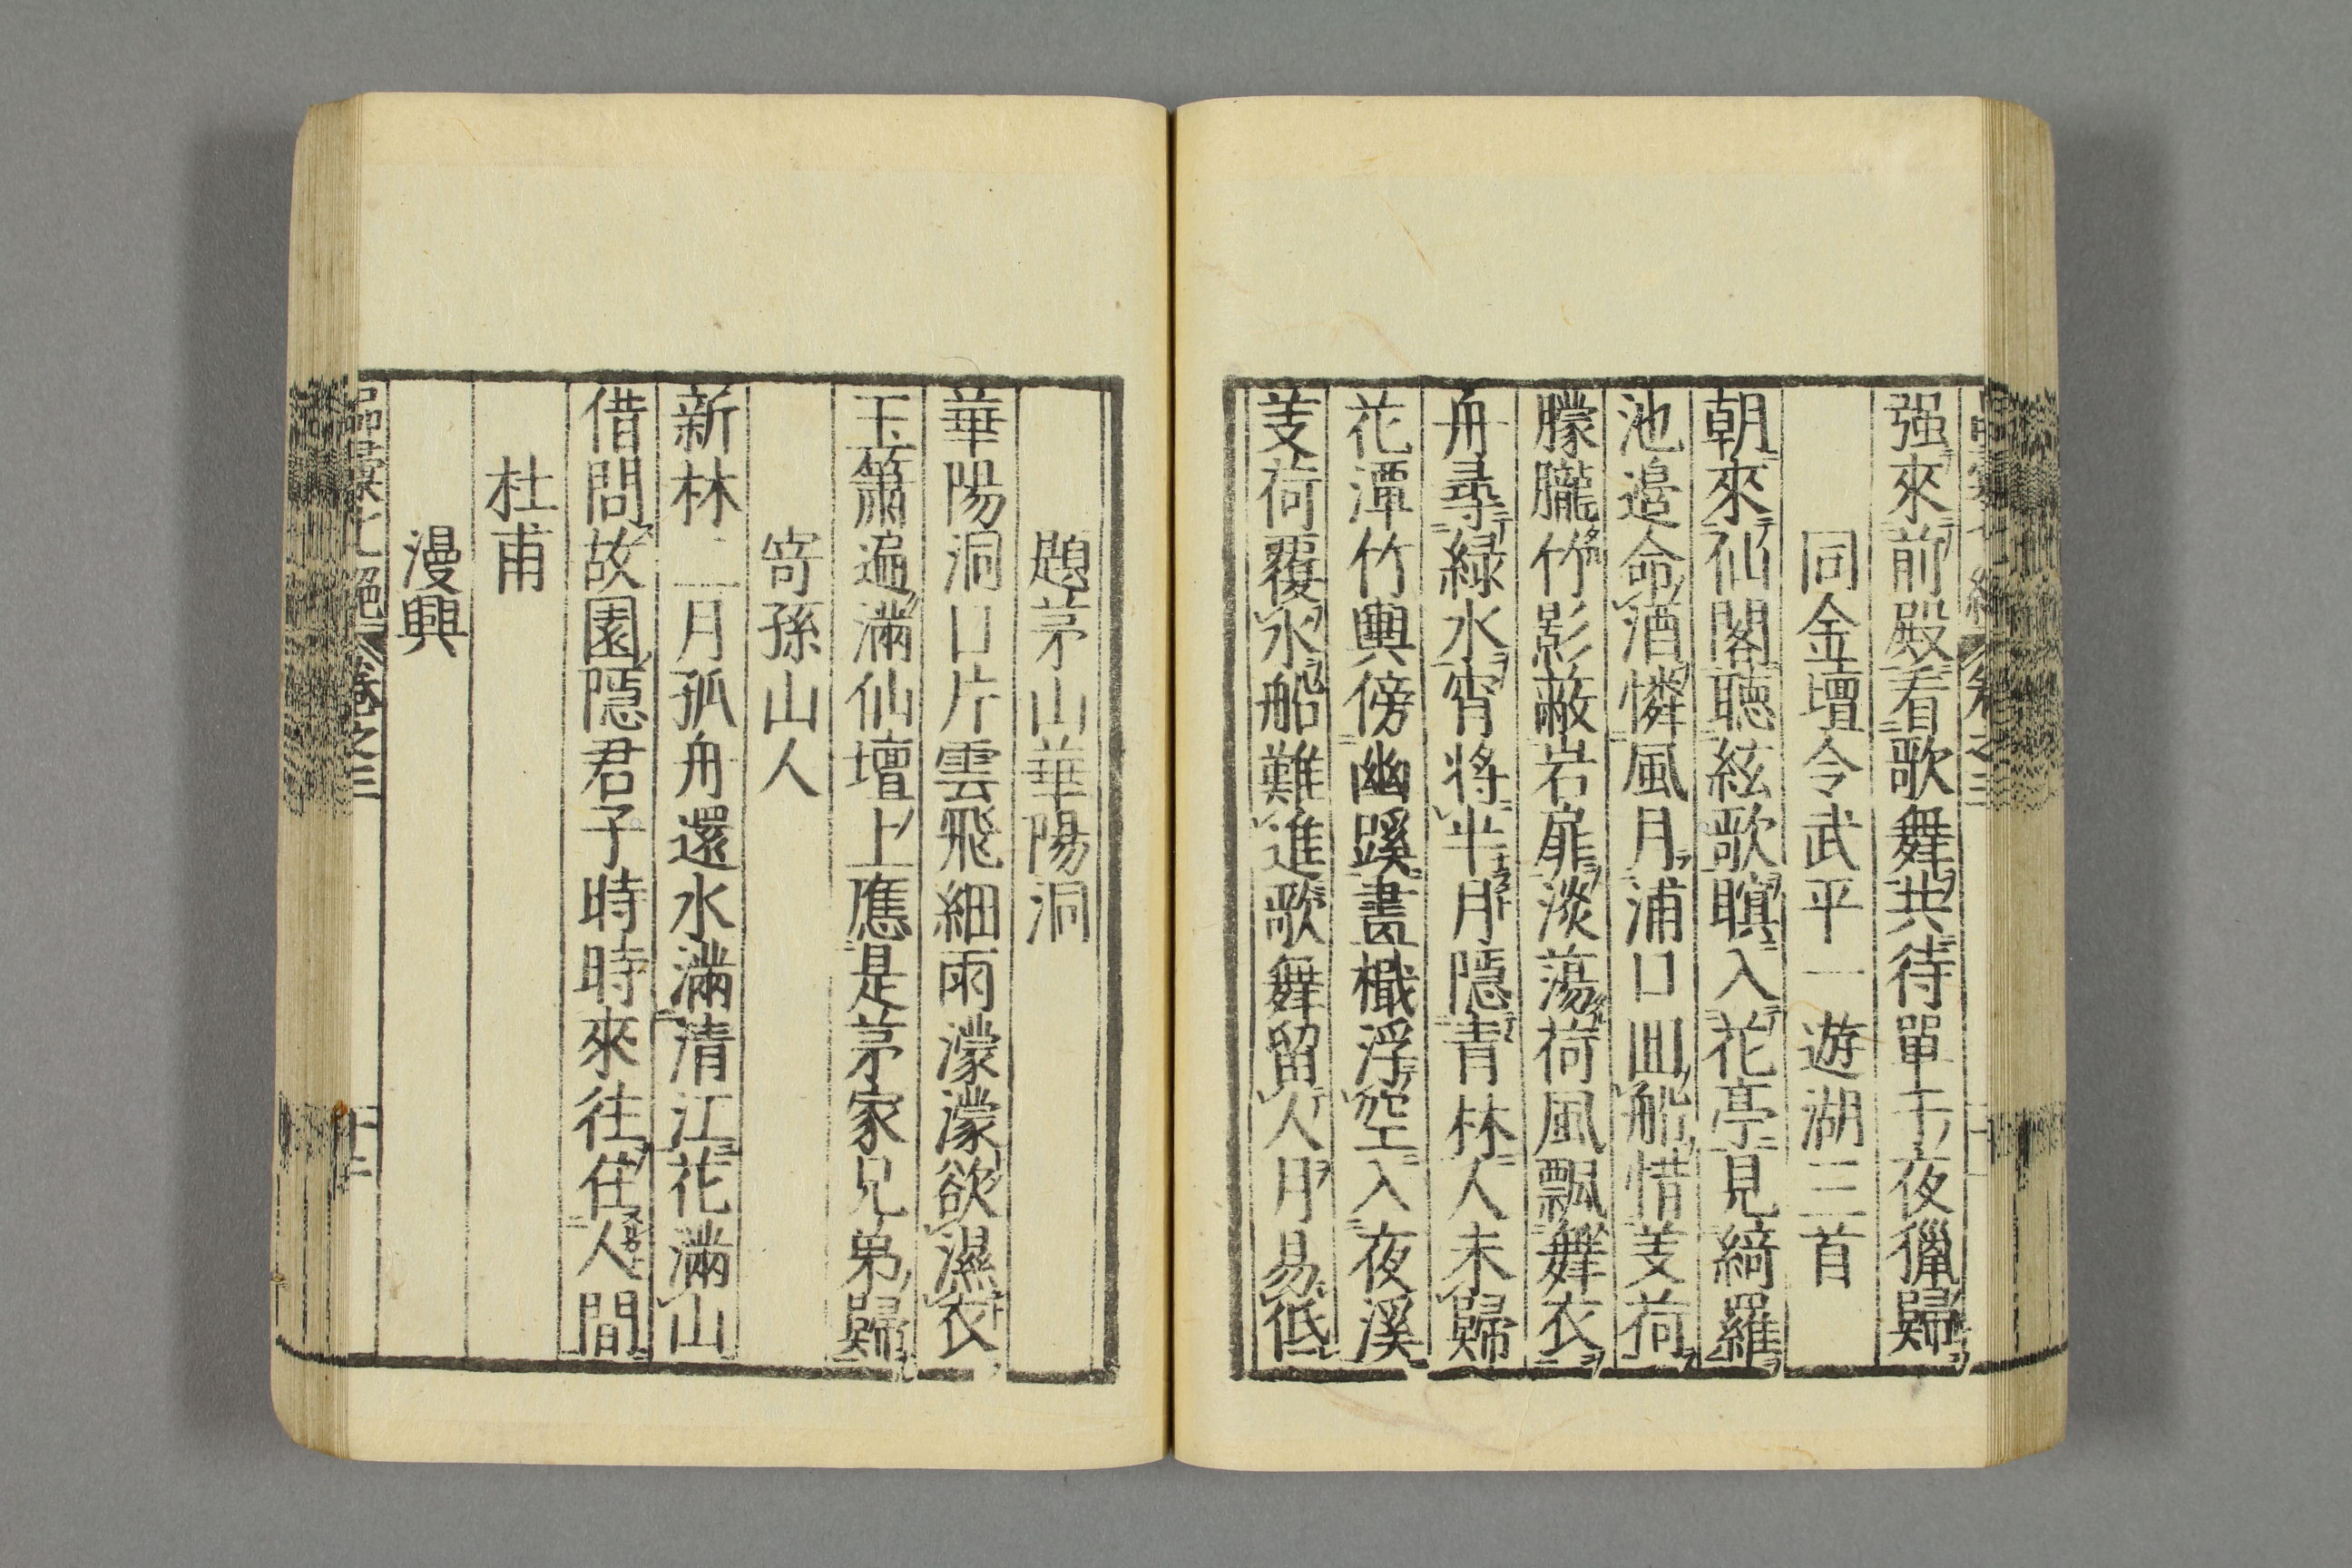 强來前殿看歌舞共待單于夜獵歸
同金壇令武平一遊湖三首
朝來仙閣聽絃歌瞑入花亭見綺羅
池邉命酒憐風月浦口囬船惜芰荷
朦朧竹影蔽岩扉淡蕩荷風飄舞衣
舟尋緑水宵將半月隱青林人未歸
花潭竹輿傍幽蹊畫檝浮空入夜溪
芰荷覆水船難進歌舞留人月易低
題茅山華陽洞
華陽洞口片雲飛細雨濛濛欲濕衣
玉簫遍滿仙壇上應是茅家兄弟歸
寄孫山人
新林二月孤舟還水滿清江花滿山
借問故園隱君子時時來往住人間
杜甫
漫興
卷之三
十二